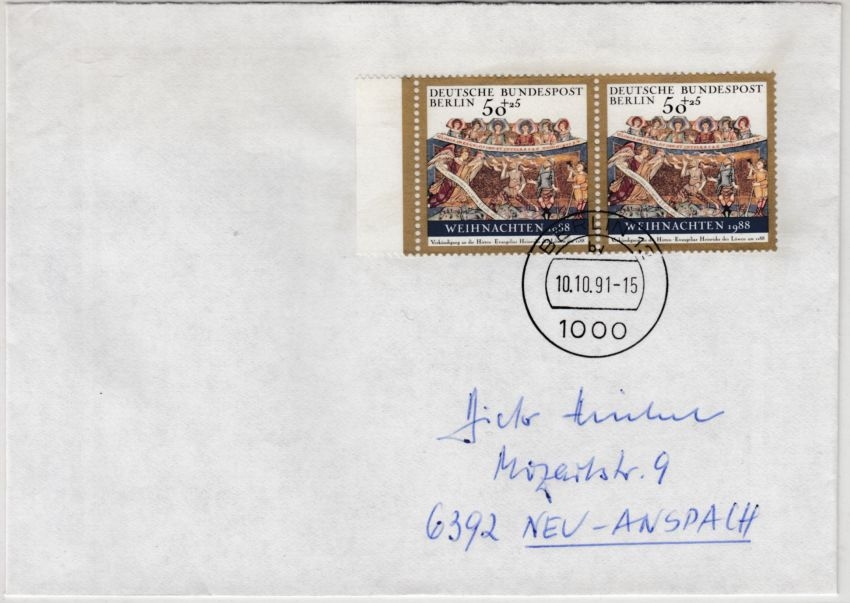 DEUTSCHE BUNDESPOST
BERLIN 50+25
WEIHNACHTEN 1988
Verkündigung an die Hirten · Evangeliar Heinrichs des Löwen um 1188
DEUTSCHE BUNDESPOST
BERLIN 50+25
WEIHNACHTEN 1988
Verkündigung an die Hirten · Evangeliar Heinrichs des Löwen um 1188
BERLIN 12
10.10.91-15
1000
Mozartstr. 9
6392 NEU-ANSPACH